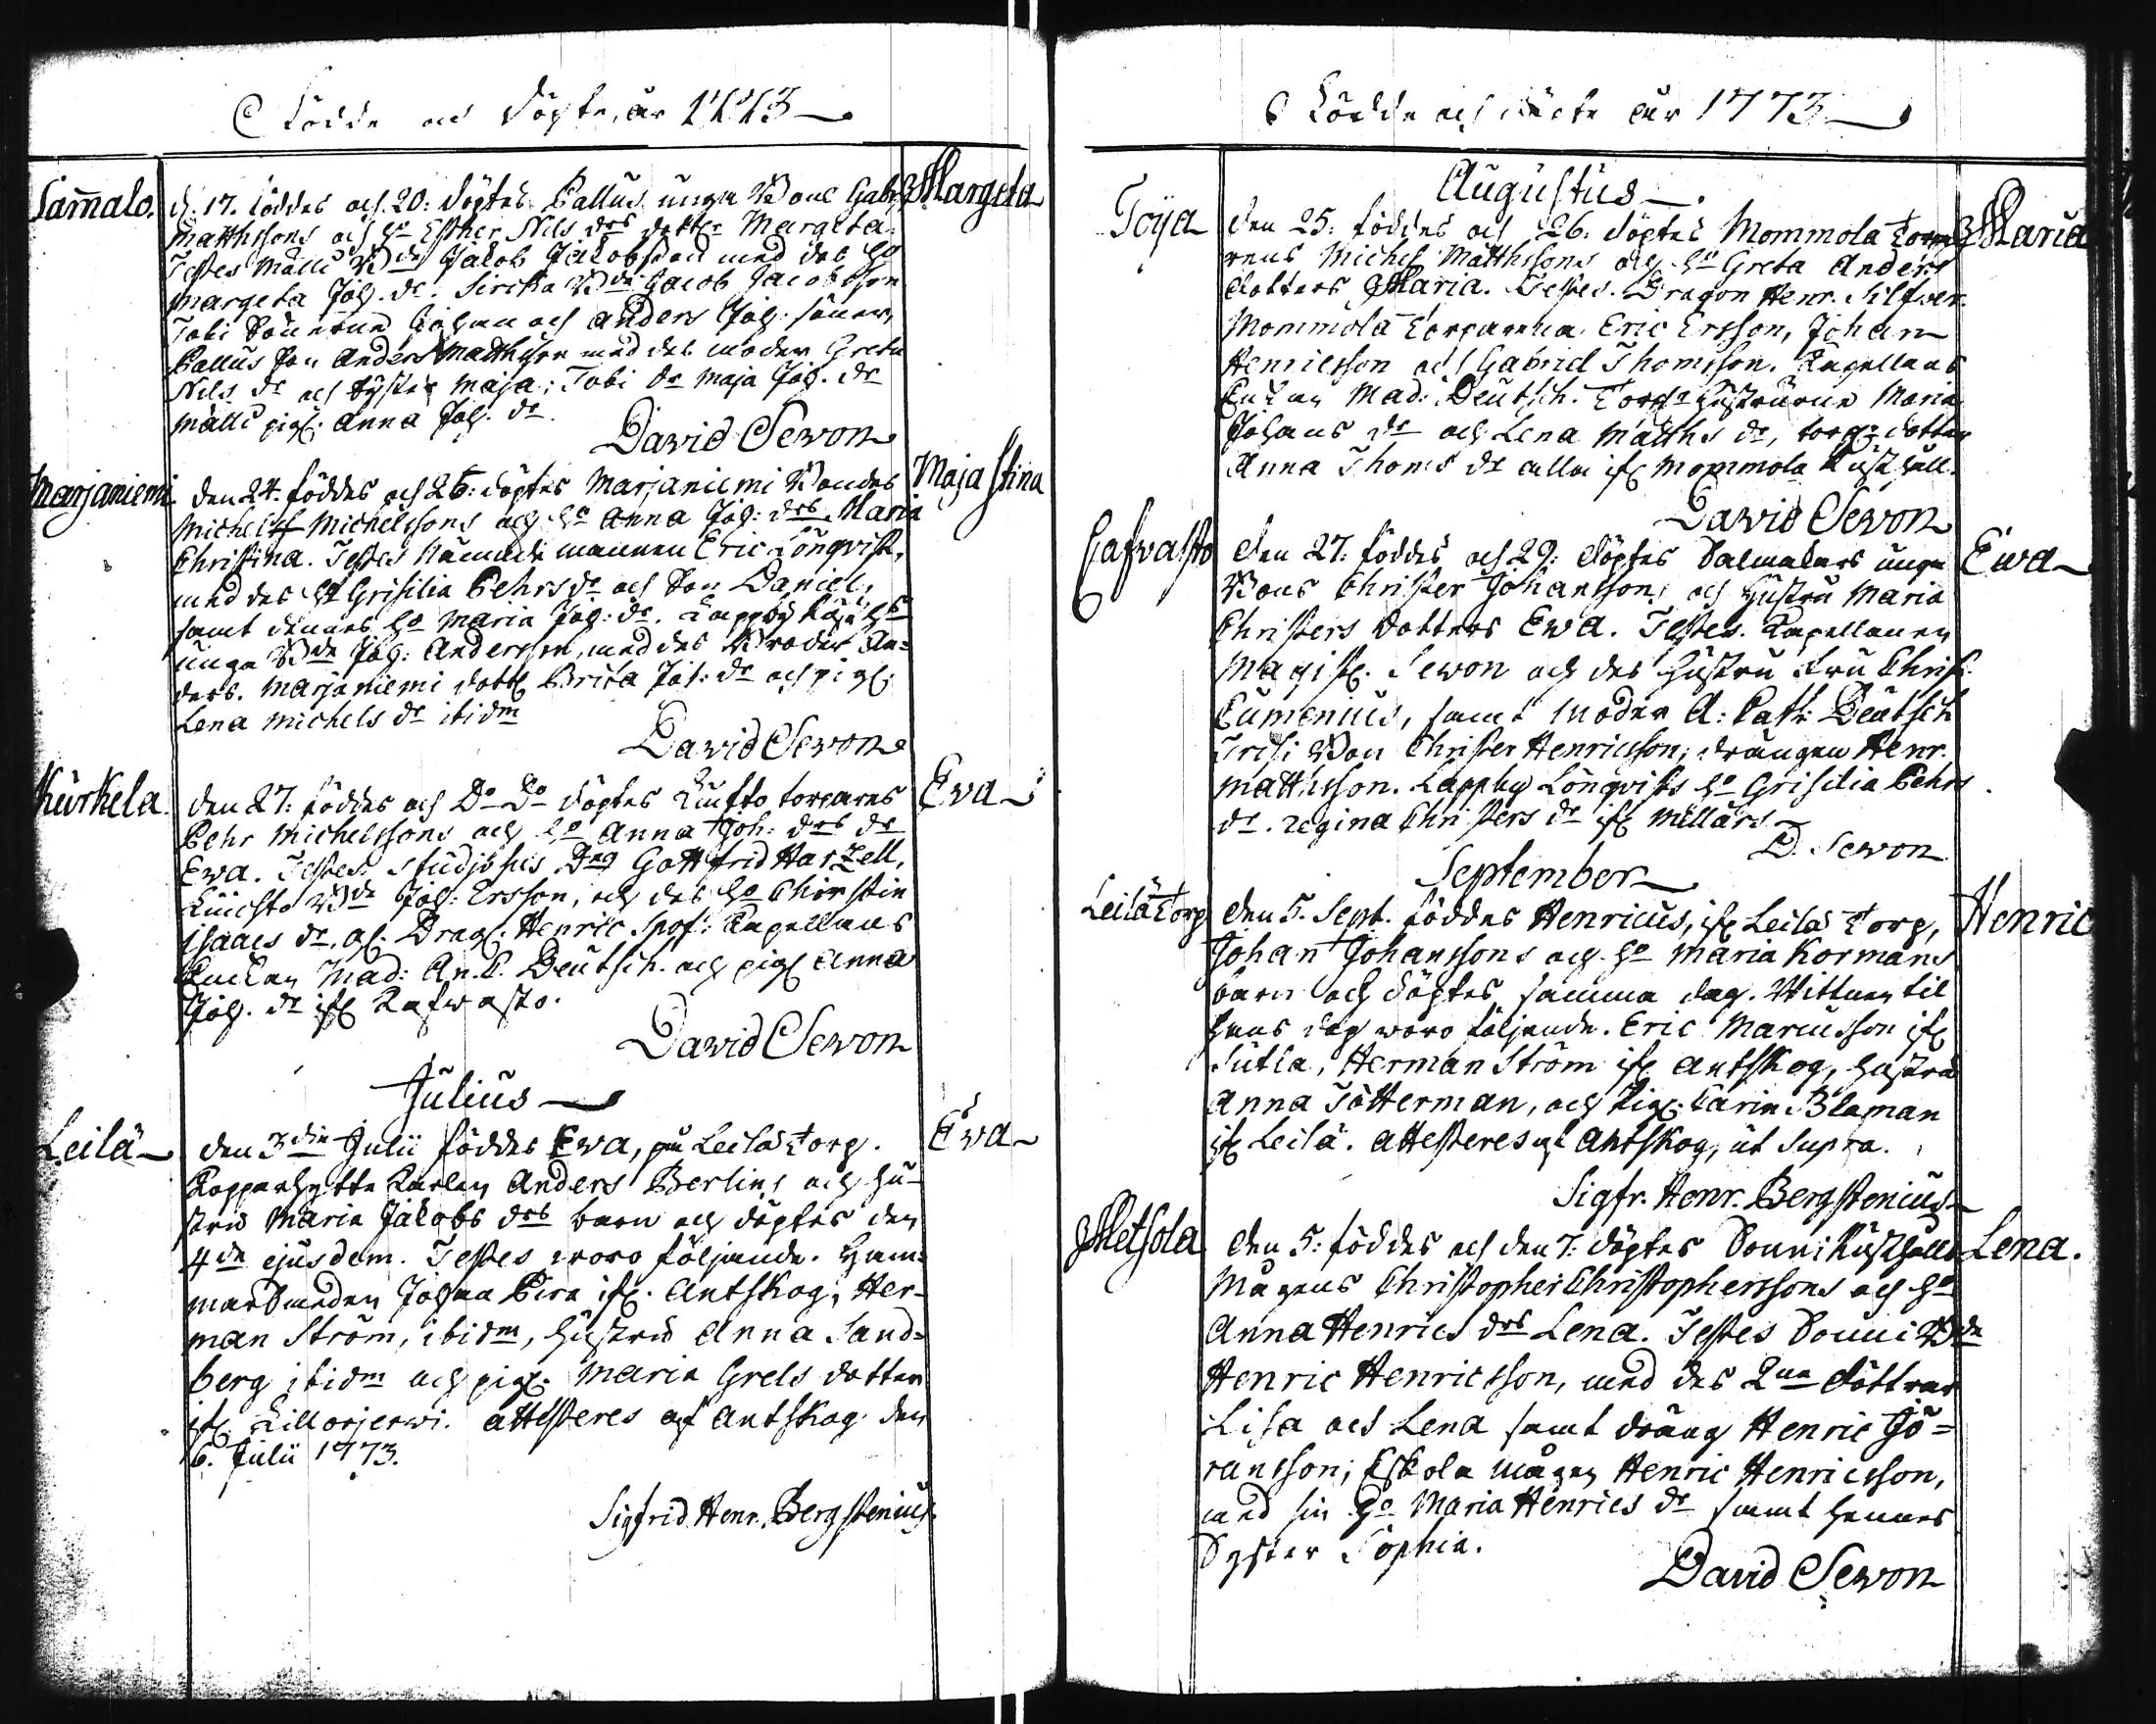 Födde och döpte, år 1773
Sam̄alo. d. 17. föddes och 20: döptes Pallus unga Bond Gabr. Margeta
Matthssons och ho Esther Nils drs dotter Margeta.
Testes Mälli Bdn Jakob Jakobsson med des ho
Margeta Joh. dr. Sircka Bdn Jacob Jacobsson
Tobi Sönerne Johan och Anders Joh. söner,
Pallus son Anders Matthsson med des moder Greta
Nils dr och syster Maja; Tobi dr Maja Joh. dr
Mälli pig. Anna Joh. dr
David Sewon
Marjaniemi den 24. föddes och 26: döptes Marjaniemi Bondes Maja Stina
Michels Michelssons och ho Anna Joh: drs Maria
Christina. Testes Nämnde mannen Eric Lönqvist,
med des ho Grisilia Pehrs dr och Son Daniel,
samt dennes ho Maria Joh: dr.
unga Bdn Joh: Andersson, med des Broder An=
ders. Marjaniemi dott Brita Joh: dr och pig.
Lena Michels dr ibidm
David Sewon
Kurkela den 27: föddes och Do Do döptes torpares Eva
Pehr Michelssons och ho Anna Joh: drs dr
Ewa. Testes Studiosus Dng Gottfrid Harzell,
Bdn Joh: Ersson, och des ho Chirstin
Isaacs dr, af. Drag. Henric Kapellans
Enkan Mad: An. C. Deutsch. och pig Anna
Joh. dr ifr Kafwasto.
David Sewon
Julius
Leilä den 3die Julii föddes Ewa, på Leilä torp. Eva
Kopparhytte Karlen Anders Berlins och hu-
stru Maria Jakobs drs barn och döptes den
4de ejusdem. Testes woro följande. Ham=
marsmeden Johan ifr. Antskog, Her-
man Ström, ibidm, hustru Anna Sand=
berg ibidm och pig. Maria Grels dotter
ifr Killorjerwi. attesteres af Antskog den
6. Julii 1773.
Sigfrid Henr. Bergstenius
Födde och döpte år 1773
Augustus
Toija den 25: föddes och 26: döptes Mommola torpa= Maria
rens Michel Matthssons och ho Greta Anders
dotters Maria. Testes. Dragon Henr. Silfwer
Mommola torparena Eric Ersson, Johan
Henricsson och Gabriel Thomsson. Kapellans
Enkan Mad: Deutsch. Torp hustrurne Maria
Johans dr och Lena Matths dr, torp: dotter
Anna Thoms dr alla ifr Mommola Rusthåll.
David Sewon
Cafvasto den 27: föddes och 29: döptes Salmelars unga Ewa
Bons Christer Johansson, och Hustru Maria
Christers dotters Ewa. Testes. Kapellanen
Magist. Sewon och des Hustru Fru Christ.
Eumenius, samt moder A: Cath: Deutsch
Bon Christer Henricsson; drängen Henr.
Matthsson. Lappby Lönqvists ho Grisilia Pehrs
dr. Regina Christers dr ifr Mällärs
D. Sewon
September
Leilä Torp den 5. Sept. föddes Henricus, ifr Leilä Torp, Henric
Johan Johanssons och ho Maria Kormans
barn och döptes samma dag. Wittnen til
hans dop woro följande. Eric Marcusson ifr
Sutla, Herman Ström ifr Antskog, hustru
Anna Tötterman, och Pig. Carin Blaman
ifr Leilä. attesteres af Antskog, ut supra.
Sigfr. Henr. Bergstenius
Metsola den 5: föddes och den 7: döptes Sonni Rusthålls Lena.
Mågens Christopher Christopherssons och ho
Anna Henrics drs Lena. Testes Sonni Bdn
Henric Henricsson, med des 2ne döttrar
Lisa och Lena samt dräng Henric Jö=
ransson; Eskola mågen Henric Henricsson,
med sin Ho Maria Henrics dr samt hennes
Syster Sophia.
David Sewon